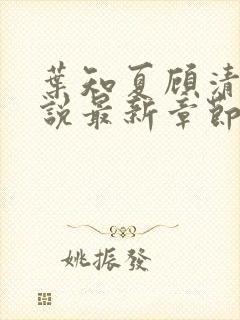 葉知夏顾清
說最新章節
姚振發